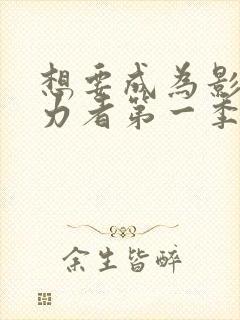 想要成为影
力者第一季
余生皆醉